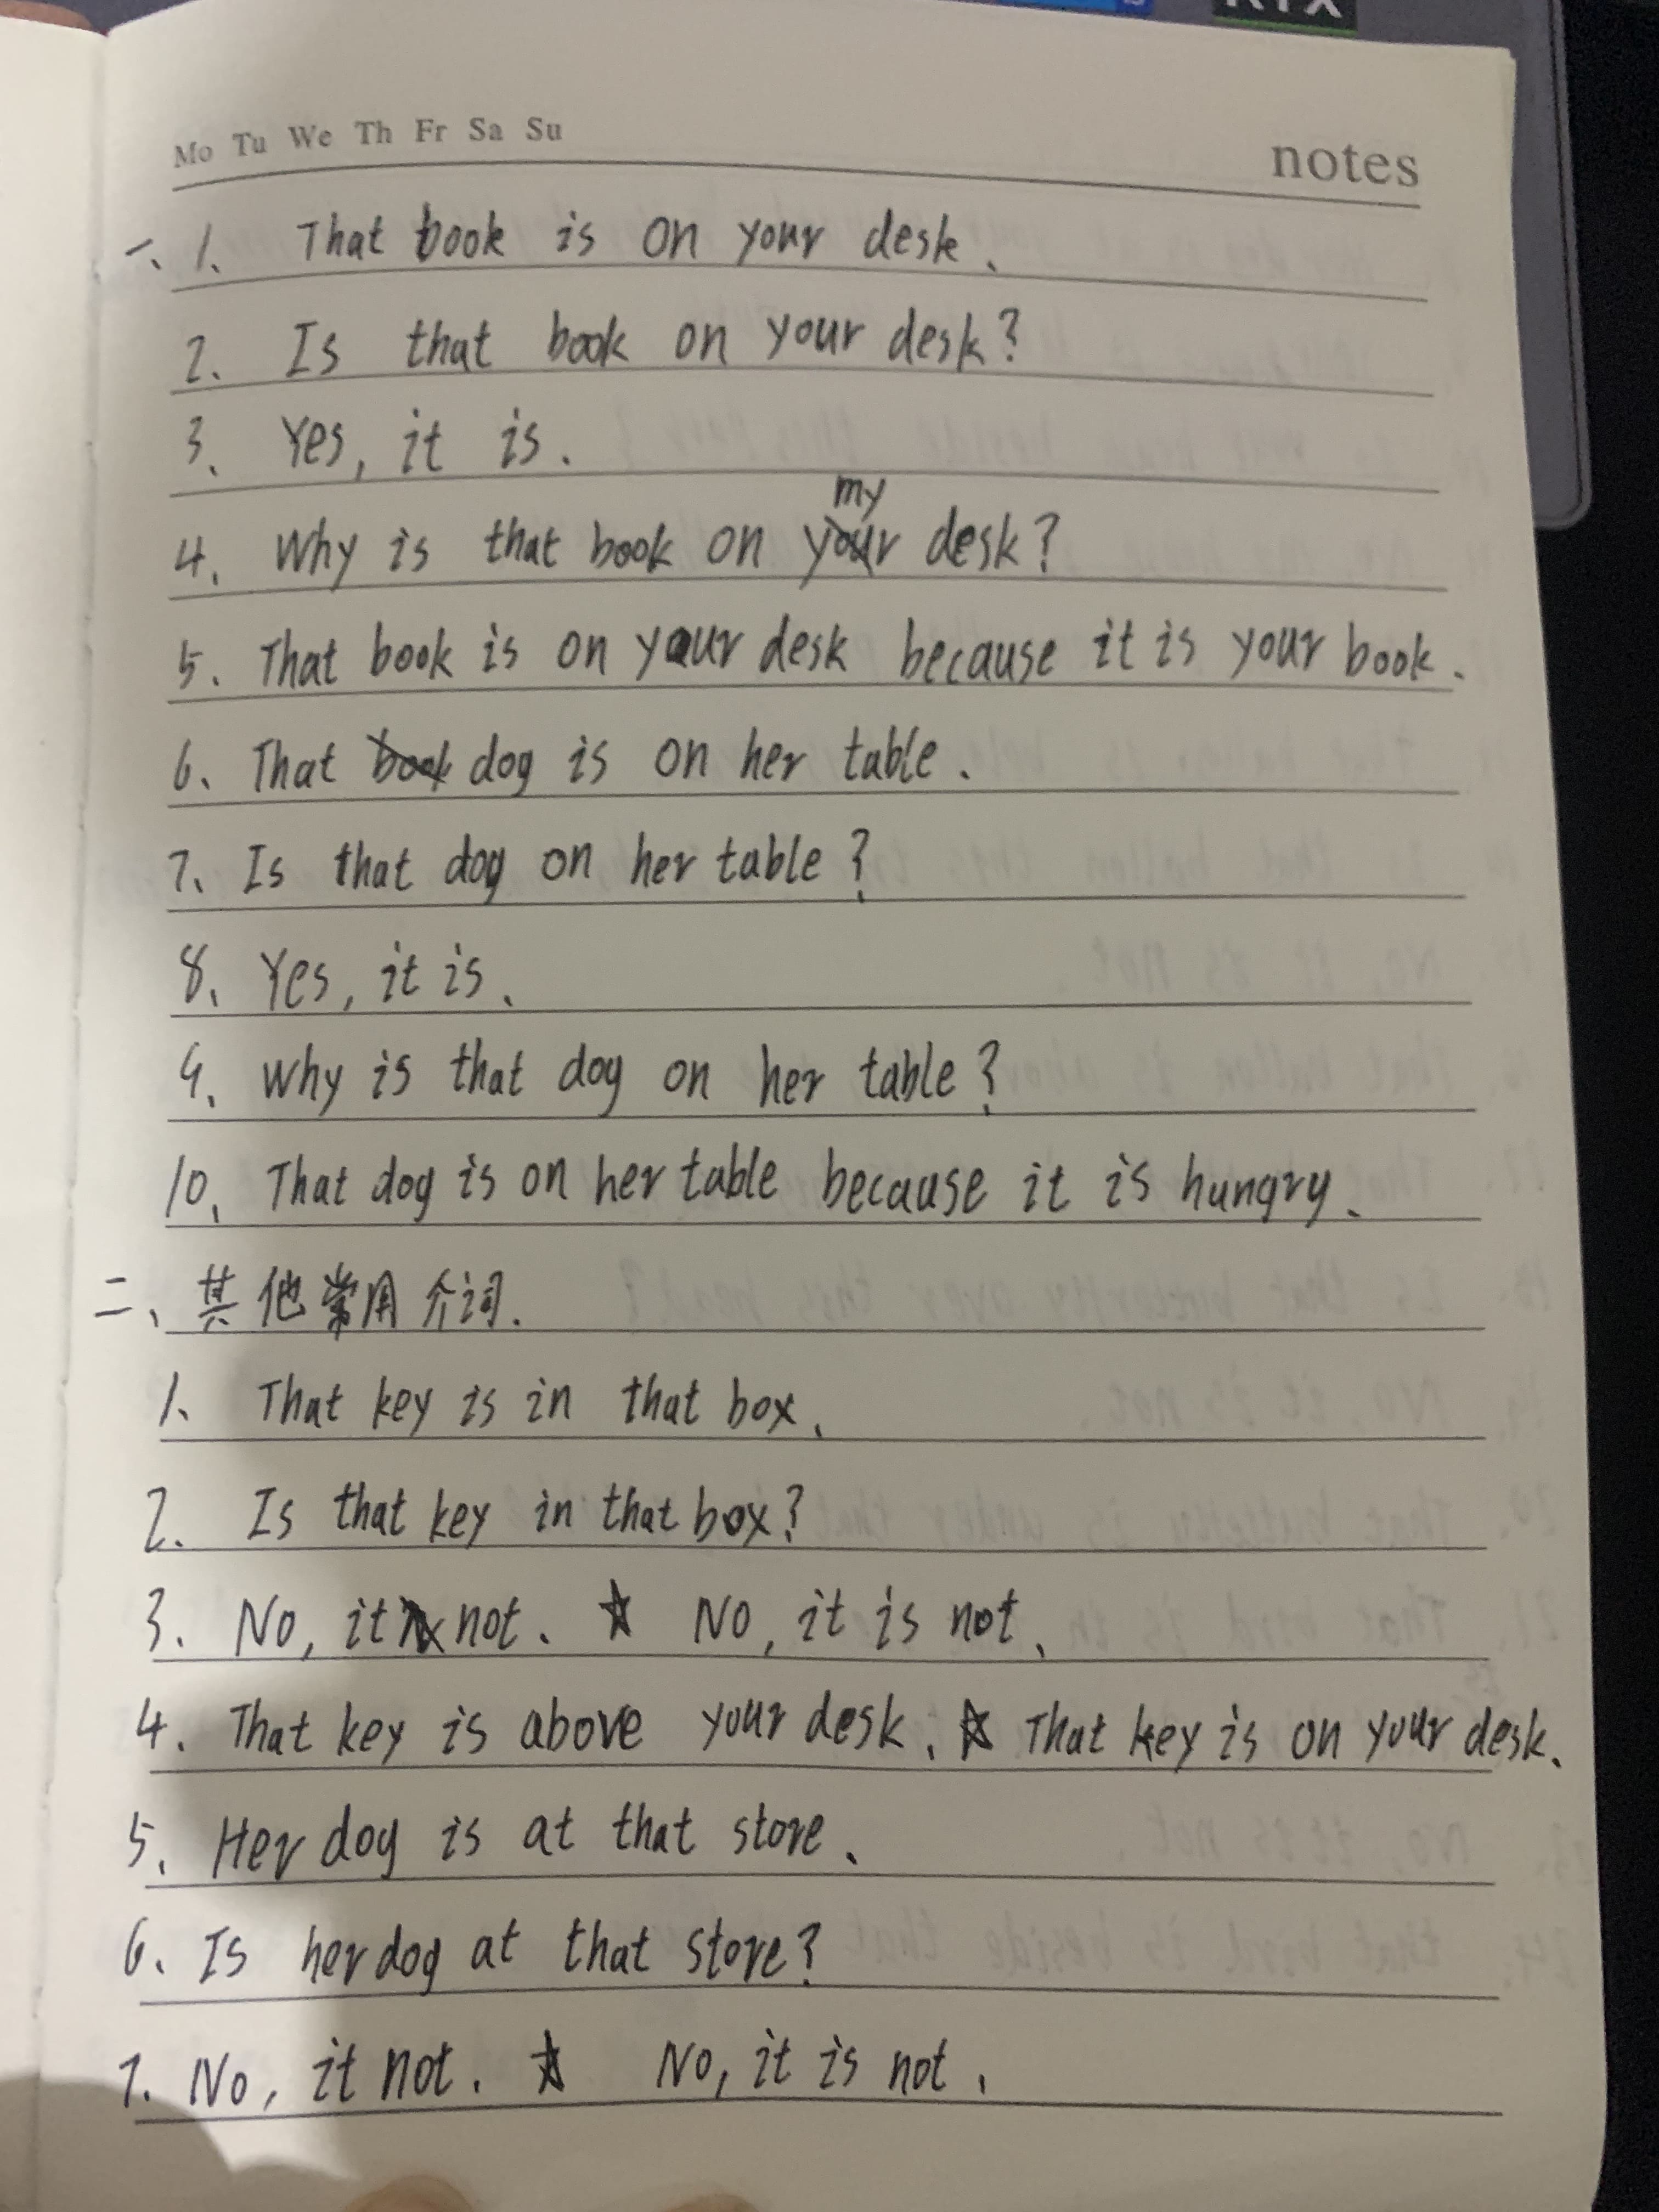 RTX
Mo Tu We Th Fr Sa Su notes
一、1、 That book is on your desk.
2、 Is that book on your desk?
3、 Yes, it is.
my
4、 Why is that book on your desk?
5. That book is on your desk because it is your book.
6、 That book dog is on her table.
7、 Is that dog on her table?
8、 Yes, it is.
9、 Why is that dog on her table?
10、 That dog is on her table because it is hungry.
二、其他常用介词.
1、 That key is in that box.
2. Is that key in that box?
3. No, it not. ☆ No, it is not.
4. That key is above your desk. ☆ That key is on your desk.
5、 Her dog is at that store.
6、 Is her dog at that store?
7. No, it not. ☆ No, it is not.